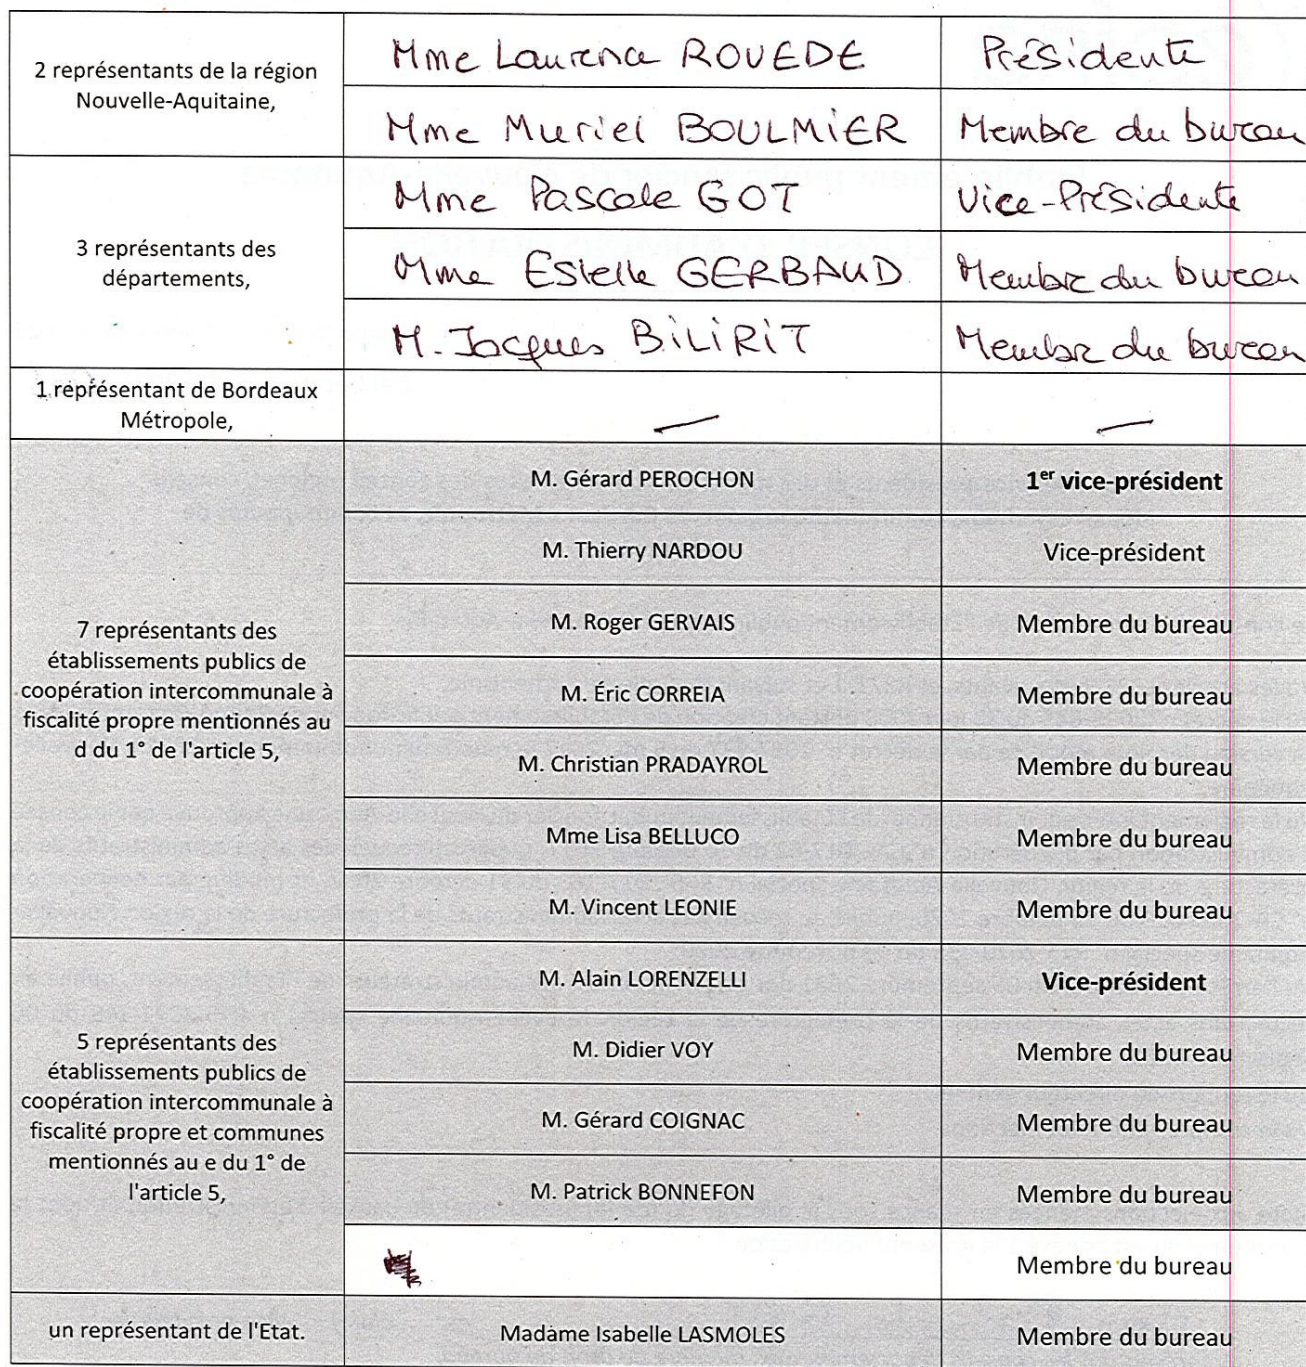 2 représentants de la région
Nouvelle-Aquitaine,
Mme Laurence ROUEDE
Présidente
Mme Muriel BOULMIER
Membre du bureau
3 représentants des
départements,
Mme Pascale GOT
Vice-Présidente
Mme Estelle GERBAUD
Membre du bureau
M. Jacques BILIRIT
Membre du bureau
1 représentant de Bordeaux
Métropole,
—
—
7 représentants des
établissements publics de
coopération intercommunale à
fiscalité propre mentionnés au
d du 1° de l'article 5,
M. Gérard PEROCHON
1er vice-président
M. Thierry NARDOU
Vice-président
M. Roger GERVAIS
Membre du bureau
M. Éric CORREIA
Membre du bureau
M. Christian PRADAYROL
Membre du bureau
Mme Lisa BELLUCO
Membre du bureau
M. Vincent LEONIE
Membre du bureau
5 représentants des
établissements publics de
coopération intercommunale à
fiscalité propre et communes
mentionnés au e du 1° de
l'article 5,
M. Alain LORENZELLI
Vice-président
M. Didier VOY
Membre du bureau
M. Gérard COIGNAC
Membre du bureau
M. Patrick BONNEFON
Membre du bureau
Membre du bureau
un représentant de l'Etat.
Madame Isabelle LASMOLES
Membre du bureau